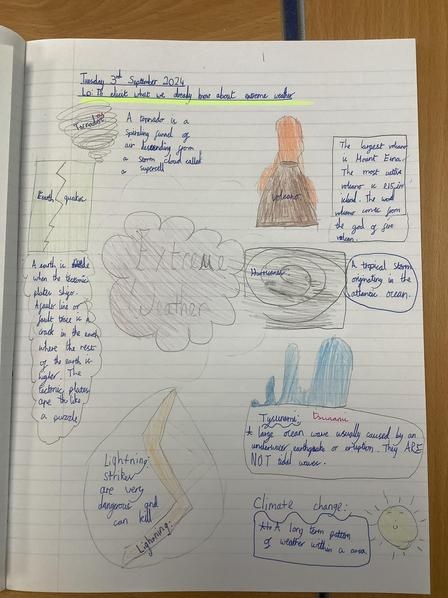 1
Tuesday 3rd September 2024
Lo: To elicit what we already know about extreme weather
Tornados
A tornado is a
spinning funnel of
air descending from
a storm cloud called
a supercell
Volcano
The largest volcano
is Mount Etna.
The most active
volcano is
island. The word
volcano comes from
the god of fire
volcan.
Earth quakes
Extreme
weather
Hurricanes
A tropical storm
originating in the
atlantic ocean.
A earth is
when the tectonic
plates
A fault line or
fault there is a
crack in the earth
where the rest
of the earth is
higher. The
tectonic plates
are like
a puzzle
Tysunami: Tsunami
A large ocean wave usually caused by an
underwater earthquake or eruption. They ARE
NOT tidal waves.
Lightning:
strikes
are very
dangerous and
can kill
Lightning:
Climate change:
A long term pattern
of weather within a area